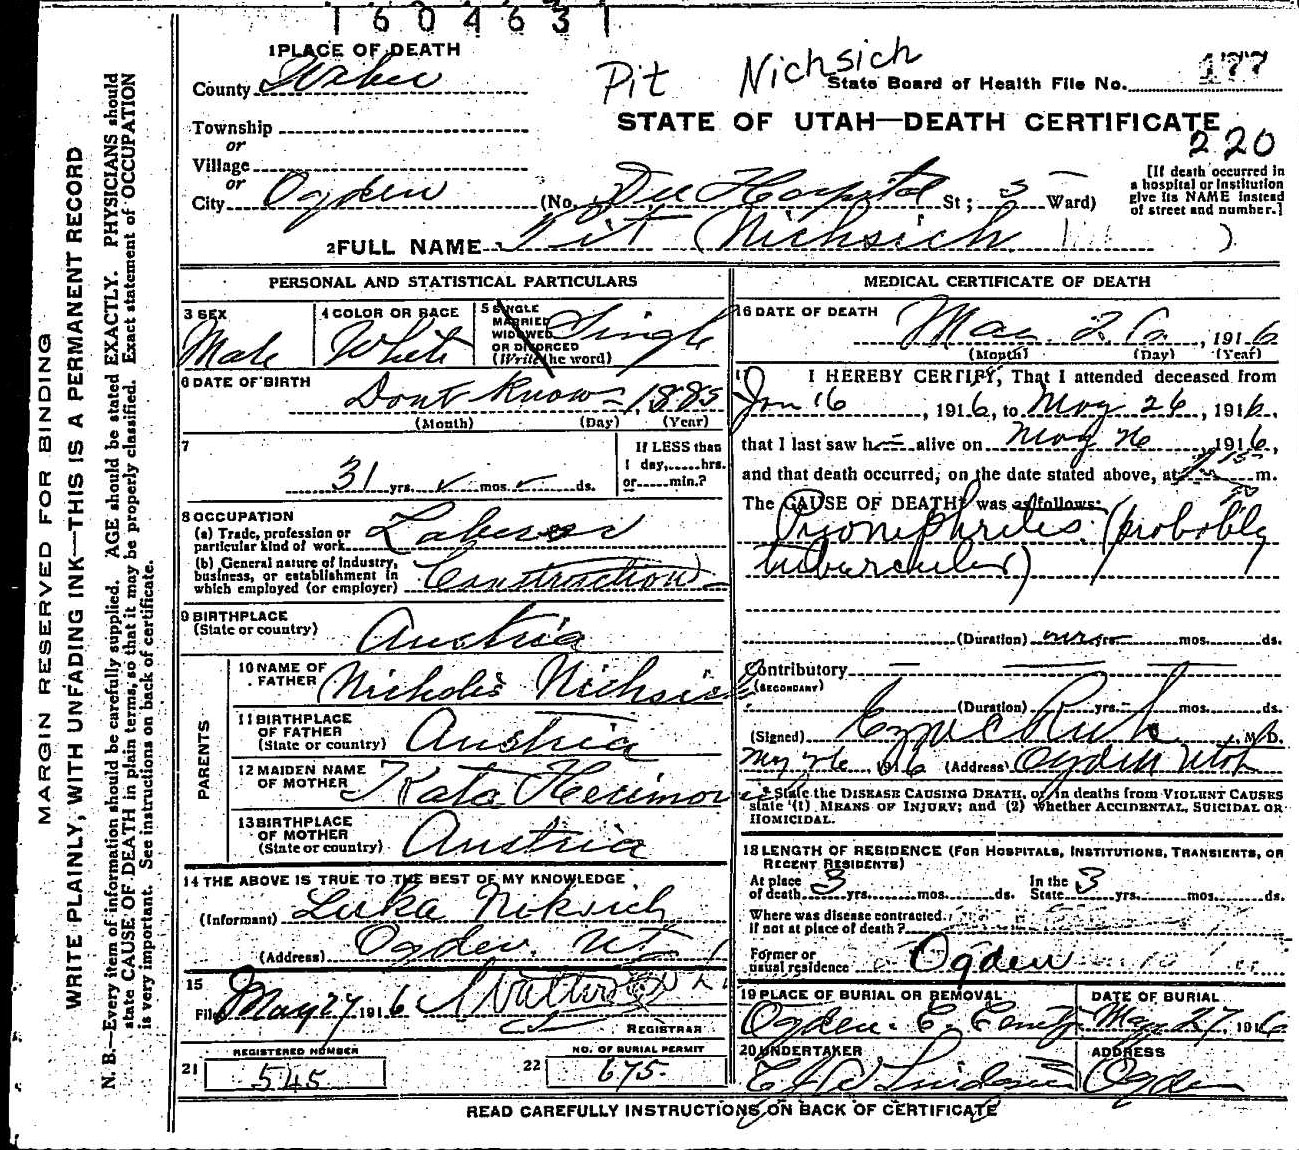 1604631
1 PLACE OF DEATH
County Weber
Pit Nichsich
State Board of Health File No. 177
STATE OF UTAH—DEATH CERTIFICATE
220
Township
or
Village
or
City Ogden (No. Dee Hospital St; 3 Ward)
[If death occurred in
a hospital or institution
give its NAME instead
of street and number.]
2 FULL NAME Pit (Nichsich )
PERSONAL AND STATISTICAL PARTICULARS
3 SEX
Male
4 COLOR OR RACE
White
5 SINGLE
MARRIED
WIDOWED
OR DIVORCED
(Write the word)
Single
6 DATE OF BIRTH
Dont Know - 1885
(Month) (Day) (Year)
7
31 yrs. ✓ mos. ✓ ds.
If LESS than
1 day,.....hrs.
or.....min.?
8 OCCUPATION
(a) Trade, profession or
particular kind of work Laborer
(b) General nature of Industry,
business, or establishment in
which employed (or employer) Construction
9 BIRTHPLACE
(State or country) Austria
PARENTS
10 NAME OF
FATHER Nicholis Nichsich
11 BIRTHPLACE
OF FATHER
(State or country) Austria
12 MAIDEN NAME
OF MOTHER Kata Herimovic
13 BIRTHPLACE
OF MOTHER
(State or country) Austria
14 THE ABOVE IS TRUE TO THE BEST OF MY KNOWLEDGE
(Informant) Luka Niksich
(Address) Ogden. Ut
15
Filed May 27 1916
REGISTRAR
REGISTERED NUMBER
21 545
NO. OF BURIAL PERMIT
22 675.
MEDICAL CERTIFICATE OF DEATH
16 DATE OF DEATH
May 26, 1916
(Month) (Day) (Year)
17 I HEREBY CERTIFY, That I attended deceased from
Jan 16, 1916, to May 26, 1916,
that I last saw h— alive on May 26 1916,
and that death occurred, on the date stated above, at m.
The CAUSE OF DEATH was as follows:
Pyonephritis. (probably
tubercular)
(Duration) yrs. mos. ds.
Contributory
(SECONDARY)
(Duration) yrs. mos. ds.
(Signed) M. D.
May 26 1916 (Address) Ogden Utah
State the DISEASE CAUSING DEATH, or, in deaths from VIOLENT CAUSES
state (1) MEANS OF INJURY; and (2) whether ACCIDENTAL, SUICIDAL OR
HOMICIDAL.
18 LENGTH OF RESIDENCE (FOR HOSPITALS, INSTITUTIONS, TRANSIENTS, OR
RECENT RESIDENTS)
At place
of death 3 yrs. mos. ds.
In the
State 3 yrs. mos. ds.
Where was disease contracted
If not at place of death?
Former or
usual residence Ogden
19 PLACE OF BURIAL OR REMOVAL
Ogden.
DATE OF BURIAL
May 27 1916
20 UNDERTAKER
ADDRESS
Ogden
READ CAREFULLY INSTRUCTIONS ON BACK OF CERTIFICATE
MARGIN RESERVED FOR BINDING
WRITE PLAINLY, WITH UNFADING INK—THIS IS A PERMANENT RECORD
N. B.—Every item of information should be carefully supplied. AGE should be stated EXACTLY. PHYSICIANS should
state CAUSE OF DEATH in plain terms, so that it may be properly classified. Exact statement of OCCUPATION
is very important. See instructions on back of certificate.